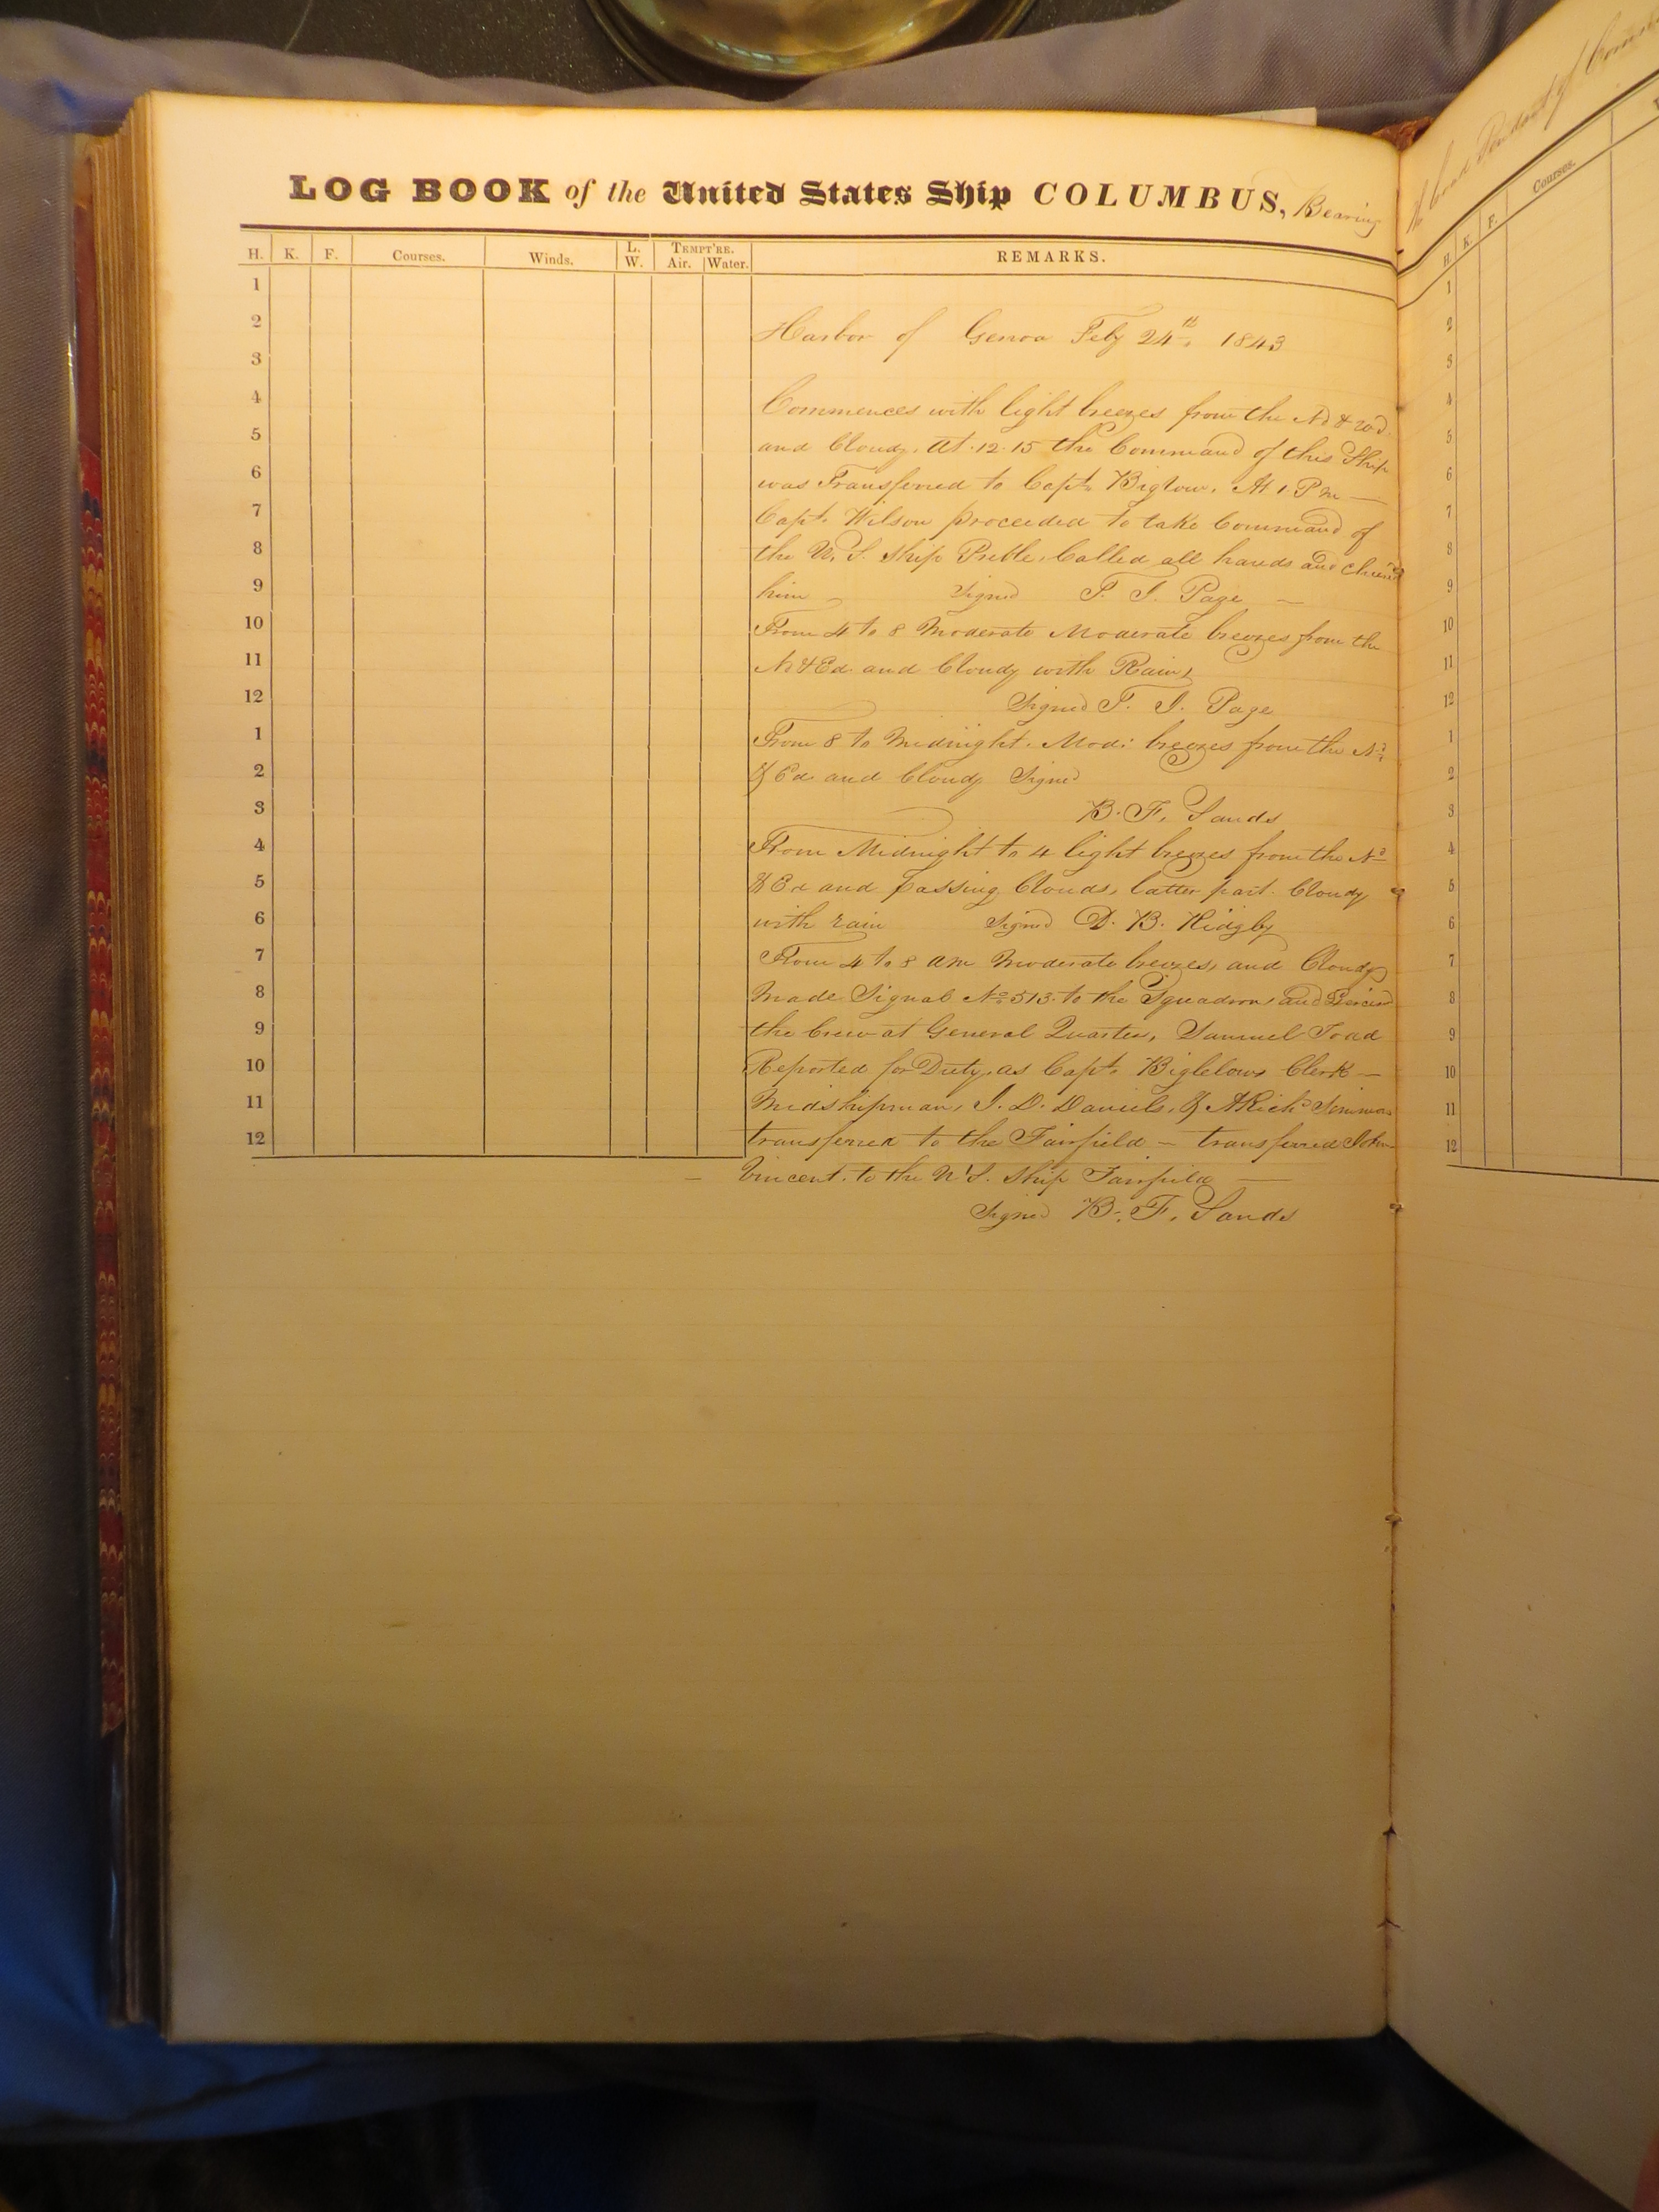 LOG BOOK of the United States Ship COLUMBUS, Bearing
H. K. F. Courses. Winds. L. W. TEMPT'RE. Air. Water. REMARKS.
1
2
Harbor of Genoa Feby 24th, 1843
3
4
Commences with light breezes from the Nd & Wd.
5
and Cloudy. At 12.15 the Command of this Ship
6
was Transferred to Capt. Biglow. At 1. P m —
7
Capt. Wilson proceeded to take Command of
8
the U. S. Ship Preble. Called all hands and cheered
9
him — Signed T. J. Page —
10
From 4 to 8 Moderate Moderate breezes from the
11
Nd & Ed and Cloudy with Rain,
12
Signed T. J. Page
1
From 8 to Midnight. Mod: breezes from the Nd
2
& Ed and Cloudy Signed
3
B. F. Sands
4
From Midnight to 4 light breezes from the Nd
5
& Ed and passing Clouds, latter part. Cloudy
6
with rain Signed D. B. Ridgby
7
From 4 to 8 am Moderate breezes, and Cloudy
8
Made Signal No 513. to the Squadron, and
9
the Crew at General Quarters, Samuel Toad
10
Reported for Duty. as Capt. Biglelows Clerk —
11
Midshipman, J. D. Daniels, &
12
transferred to the Fairfield — transferred John
— Vincent. to the U S. Ship Fairfield —
Signed B. F. Sands
Courses.
H. K. F.
1
2
3
4
5
6
7
8
9
10
11
12
1
2
3
4
5
6
7
8
9
10
11
12